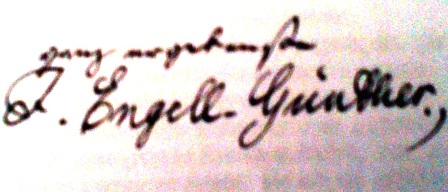 ganz ergebenste
F. Engell-Günther,